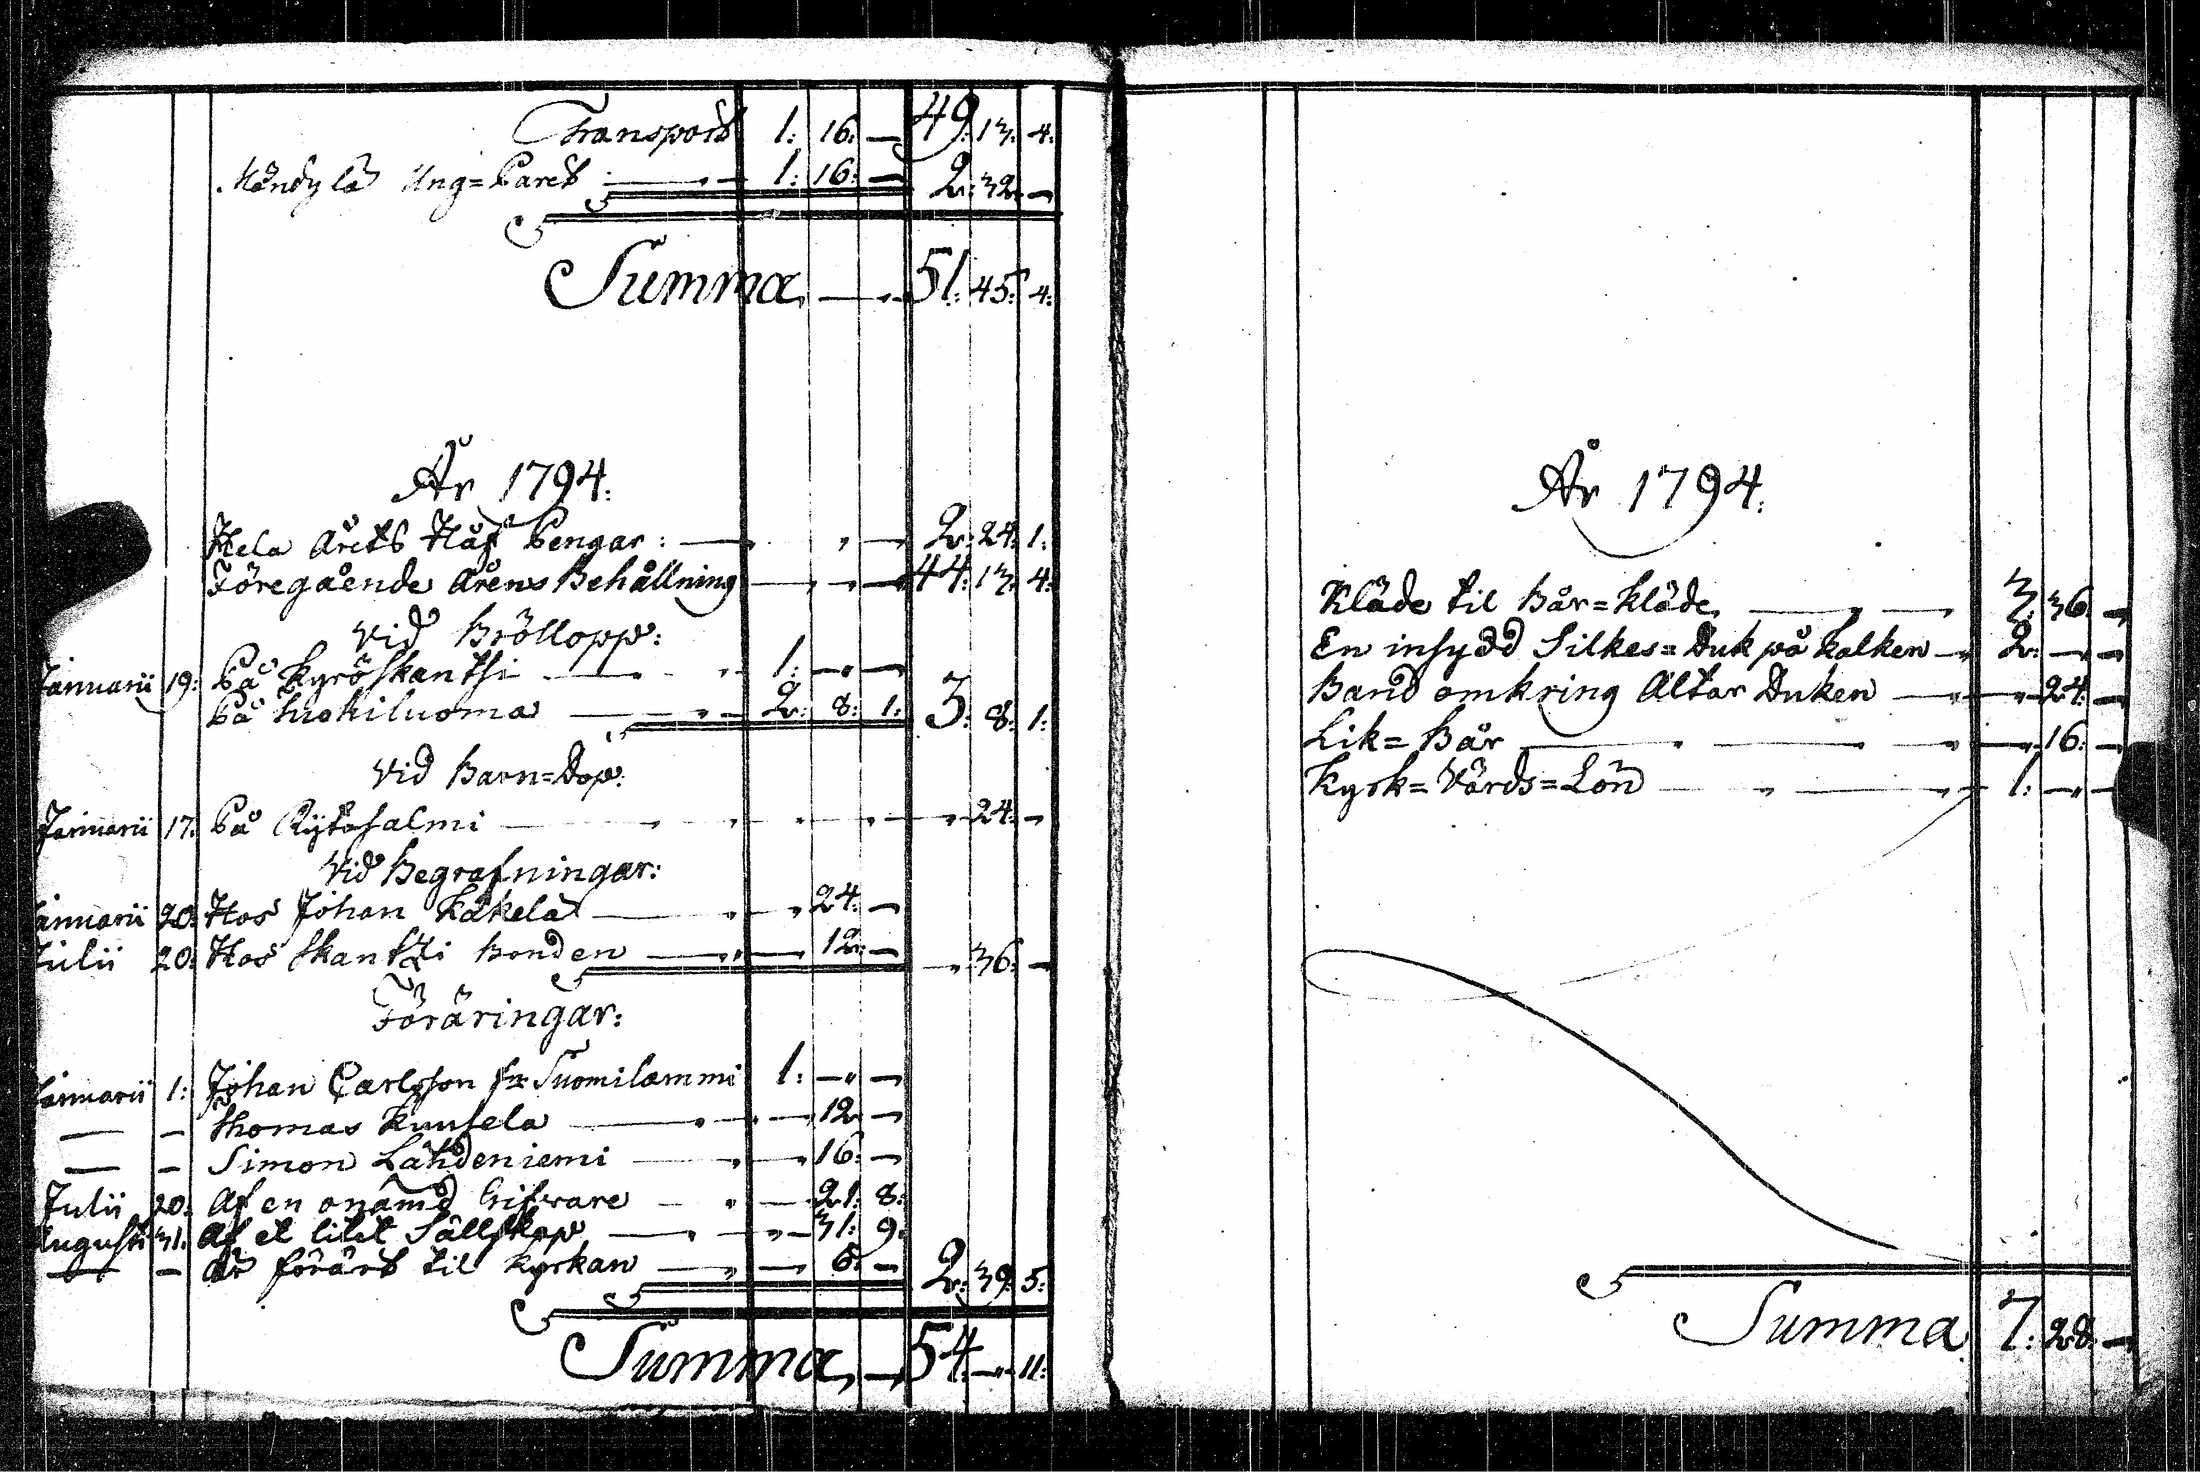 Transport 1: 16: — 49: 13: 4:
Mändylä Ung=Paret : — 1: 16: — 2: 32: —
Summa, — 51: 45: 4:
År 1794:
Hela Årets Håf Pengar: — 2: 24: 1:
Föregående Årens Behållning — 44: 13: 4:
Vid Bröllopp:
Januarii 19: På Kyröskantsi — 1: — —
På Luokiluoma — 2: 8: 1: 3: 8: 1:
Vid Barn=Dop:
Januarii 17: På Rytösalmi — 24: —
Vid Begrafningar:
Januarii 20: Hos Johan Käkelä — 24: —
Julii 20: Hos Skantzi Bonden — 12: — — 36: —
Föräringar:
Januarii 1: Johan Carlsson fr Suomilammi 1: — —
— — Thomas Kuusela — 12 —
— — Simon Lähdeniemi — 16: —
Julii 20: Af en onämd Gifvare — 21: 8:
Augusti 31: Af et litet Sällskap — 31: 9:
— — Är förärt til Kyrkan — 6: — 2: 39: 5:
Summa, — 54: — 11:
År 1794:
Kläde til Bår=Kläde, — 3: 36: —
En insydd Silkes=Duk på Kalken — 2: — —
Band omkring Altar Duken — 24: —
Lik=Bår — 16: —
Kyrk=Värds=Lön — 1: — —
Summa 7: 28: —